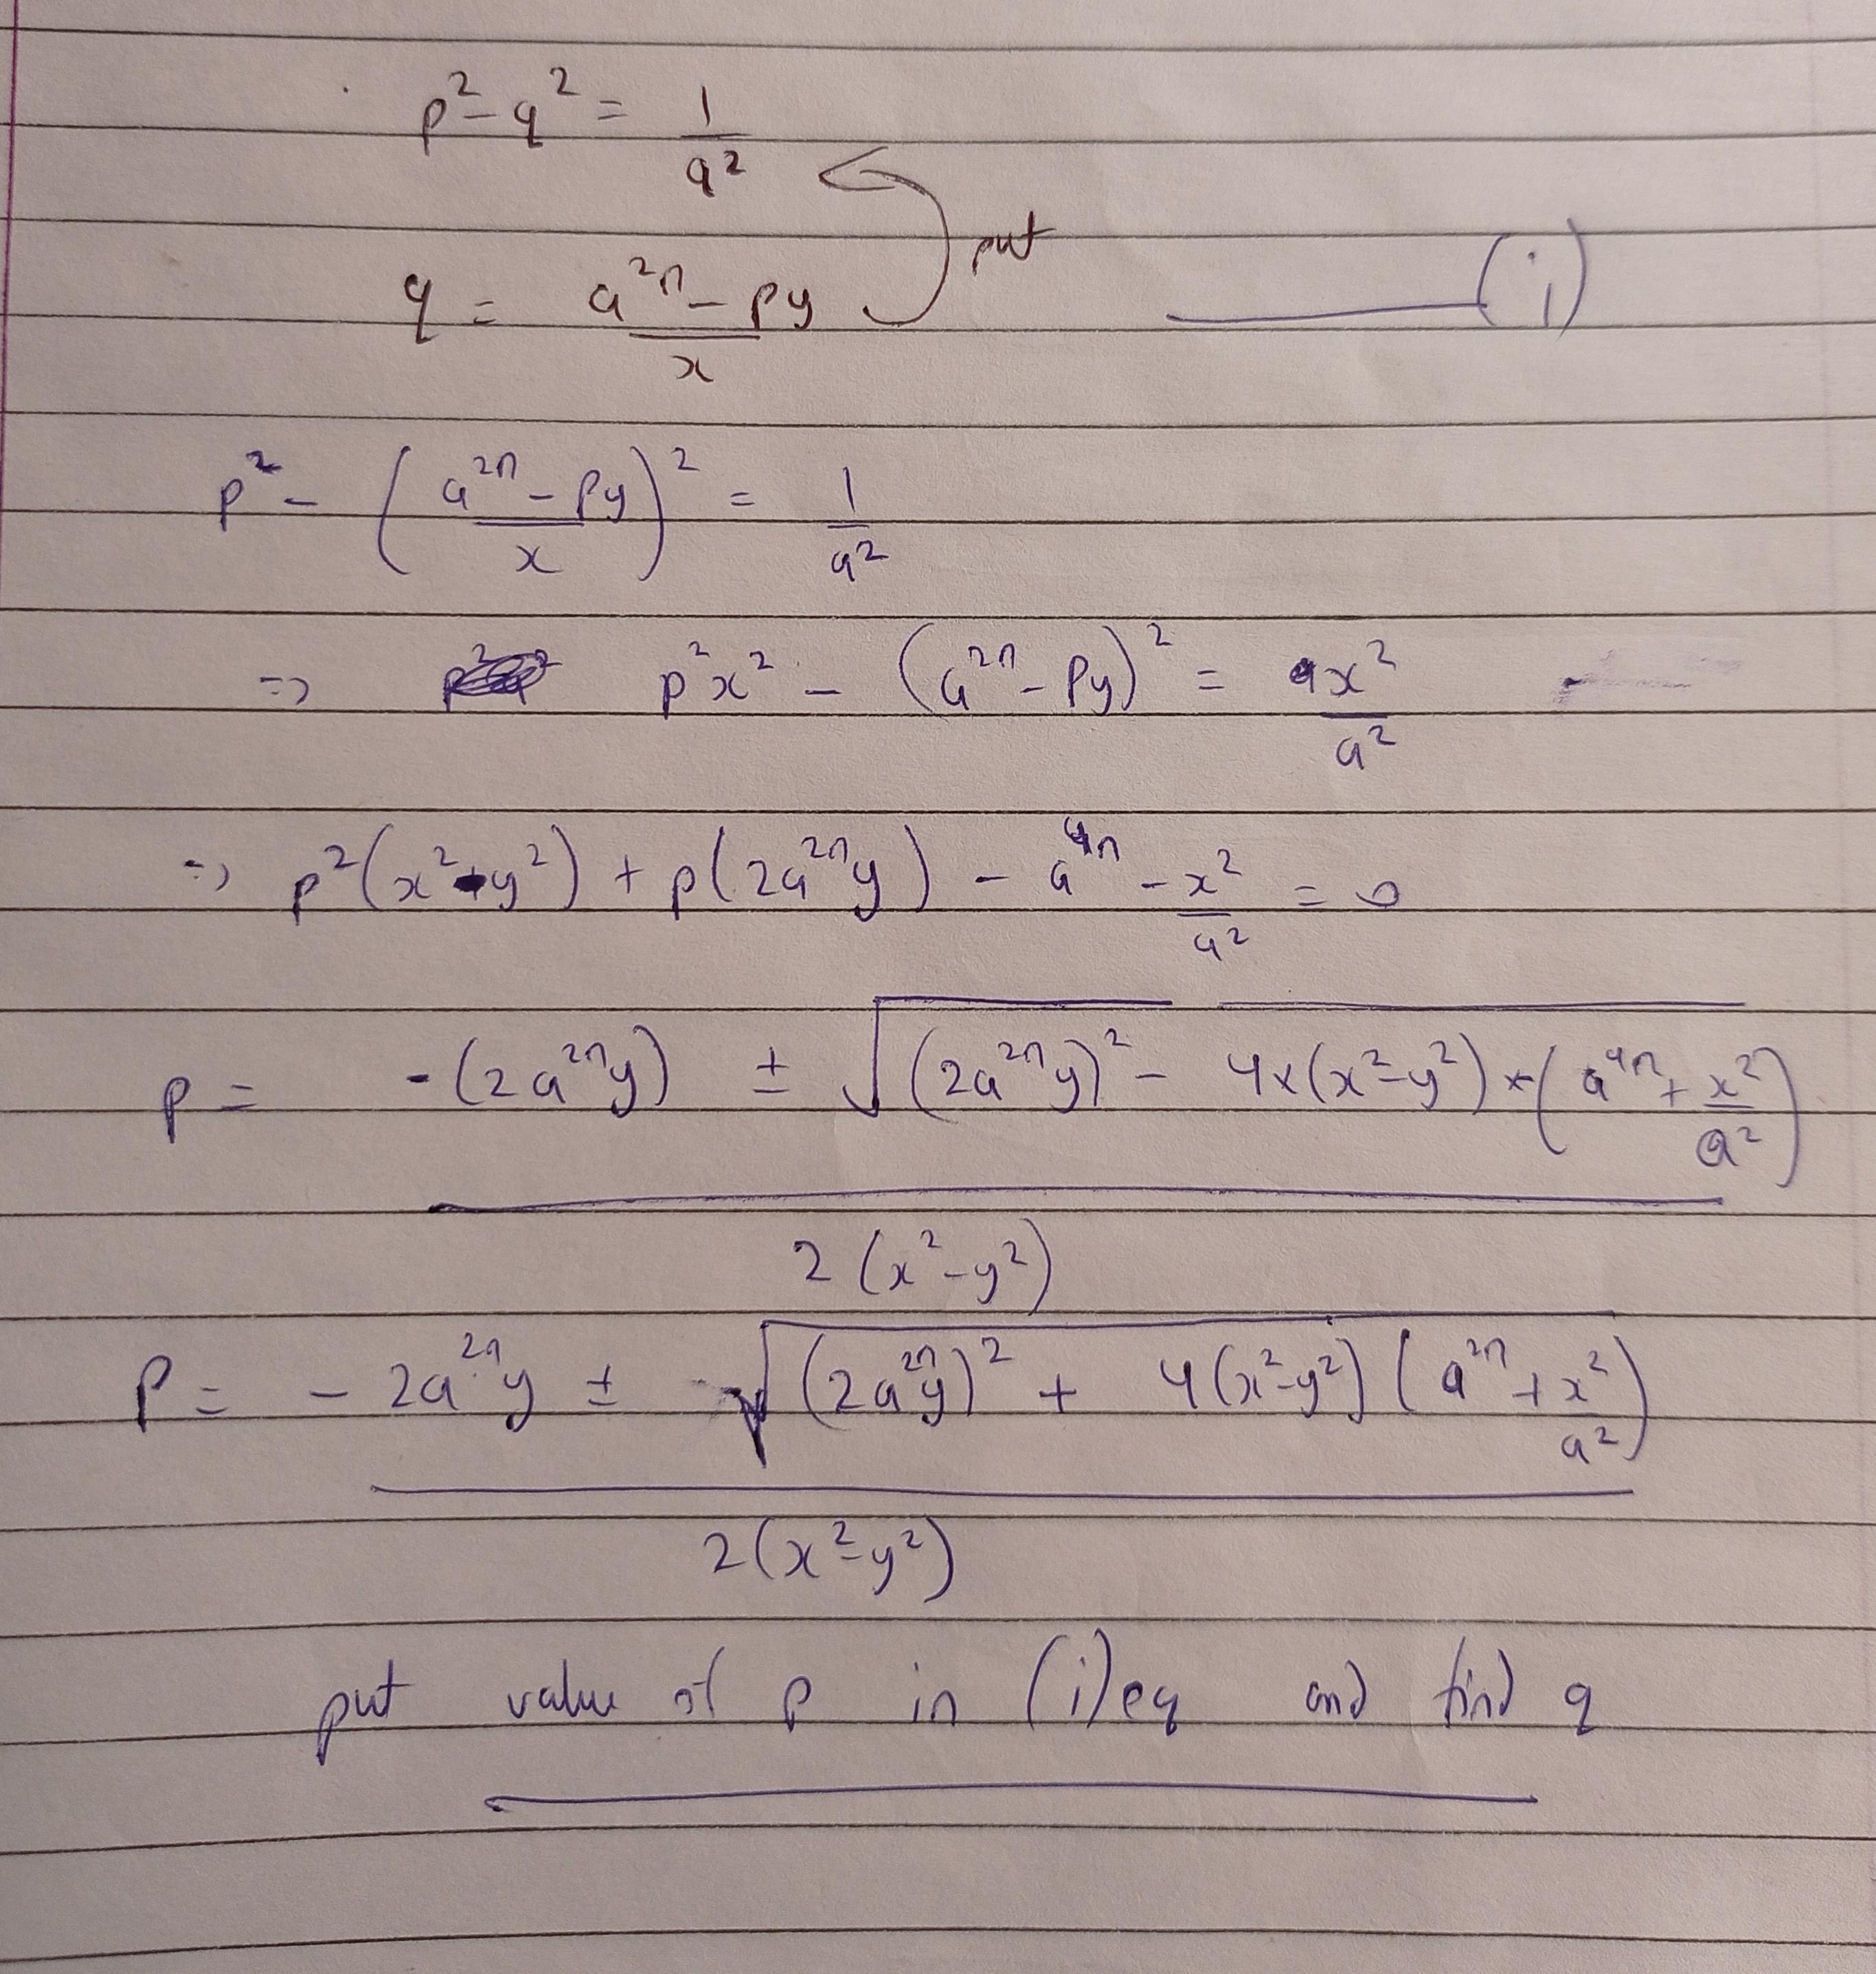 p² - q² = 1/a²
put
q = (a²ⁿ - py)/x ——— (i)
p² - ((a²ⁿ - py)/x)² = 1/a²
=> p²x² - (a²ⁿ - py)² = x²/a²
=> p²(x² - y²) + p(2a²ⁿy) - a⁴ⁿ - x²/a² = 0
p = (-(2a²ⁿy) ± √((2a²ⁿy)² - 4×(x²-y²)×(a⁴ⁿ + x²/a²)))/(2(x²-y²))
p = (-2a²ⁿy ± √((2a²ⁿy)² + 4(x²-y²)(a²ⁿ + x²/a²)))/(2(x²-y²))
put value of p in (i) eq and find q